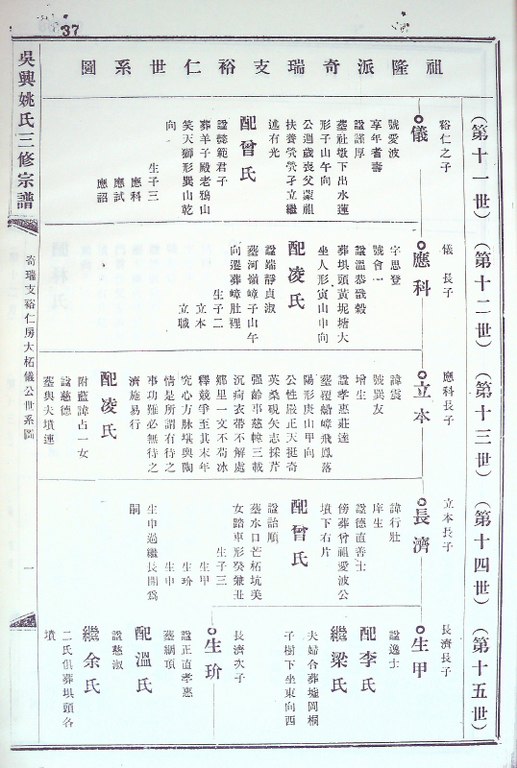 37
祖隆派奇瑞支裕仁世系圖
吳興姚氏三修宗譜
奇瑞支裕仁房大柘儀公世系圖
一
(第十一世)
裕仁之子
儀
號愛波
享年耆壽
諡謹厚
葬社墩下出水蓮
形子山午向
公週歲喪父蒙祖
扶養煢煢孑立繼
述有光
配曾氏
諡懿範君子
葬羊子殿老鴉山
笑天獅形巽山乾
向
生子三
應科
應試
應詔
(第十二世)
儀 長子
應科
字思登
號會一
諡溫恭戩穀
葬垻頭黃坭塘大
坐人形寅山申向
配凌氏
諡端靜貞淑
葬河嶺嶂子山午
向遷葬嶂肚裡
生子二
立本
立職
(第十三世)
應科長子
立本
諱雲
號巽友
增生
諡孝惠莊達
陽形庚山甲向
公性嚴正天挺奇
英桑硯矢志採芹
强齡事慈幃三載
沉疴衣帶不解處
鄉里一文不苟冰
釋競爭至其末年
究心方脉堪與陶
情是所謂有待之
事功雖必無待之
濟施易行
配凌氏
附藍諱占一女
諡慈德
葬與夫墳連
(第十四世)
立本長子
長濟
諱行壯
庠生
諡德直善士
傍葬曾祖愛波公
墳下右片
配曾氏
諡詒順
葬水口芒柘坑美
女踏車形癸兼丑
生子三
生甲
生玠
生申
生申過繼長開爲
嗣
(第十五世)
長濟長子
生甲
諡逸士
配李氏
繼梁氏
夫婦合葬墟岡桐
子樹下坐東向西
長濟次子
生玠
諡正直孝惠
葬糊頂
配溫氏
諡慈淑
繼余氏
二氏俱葬垻頭各
墳